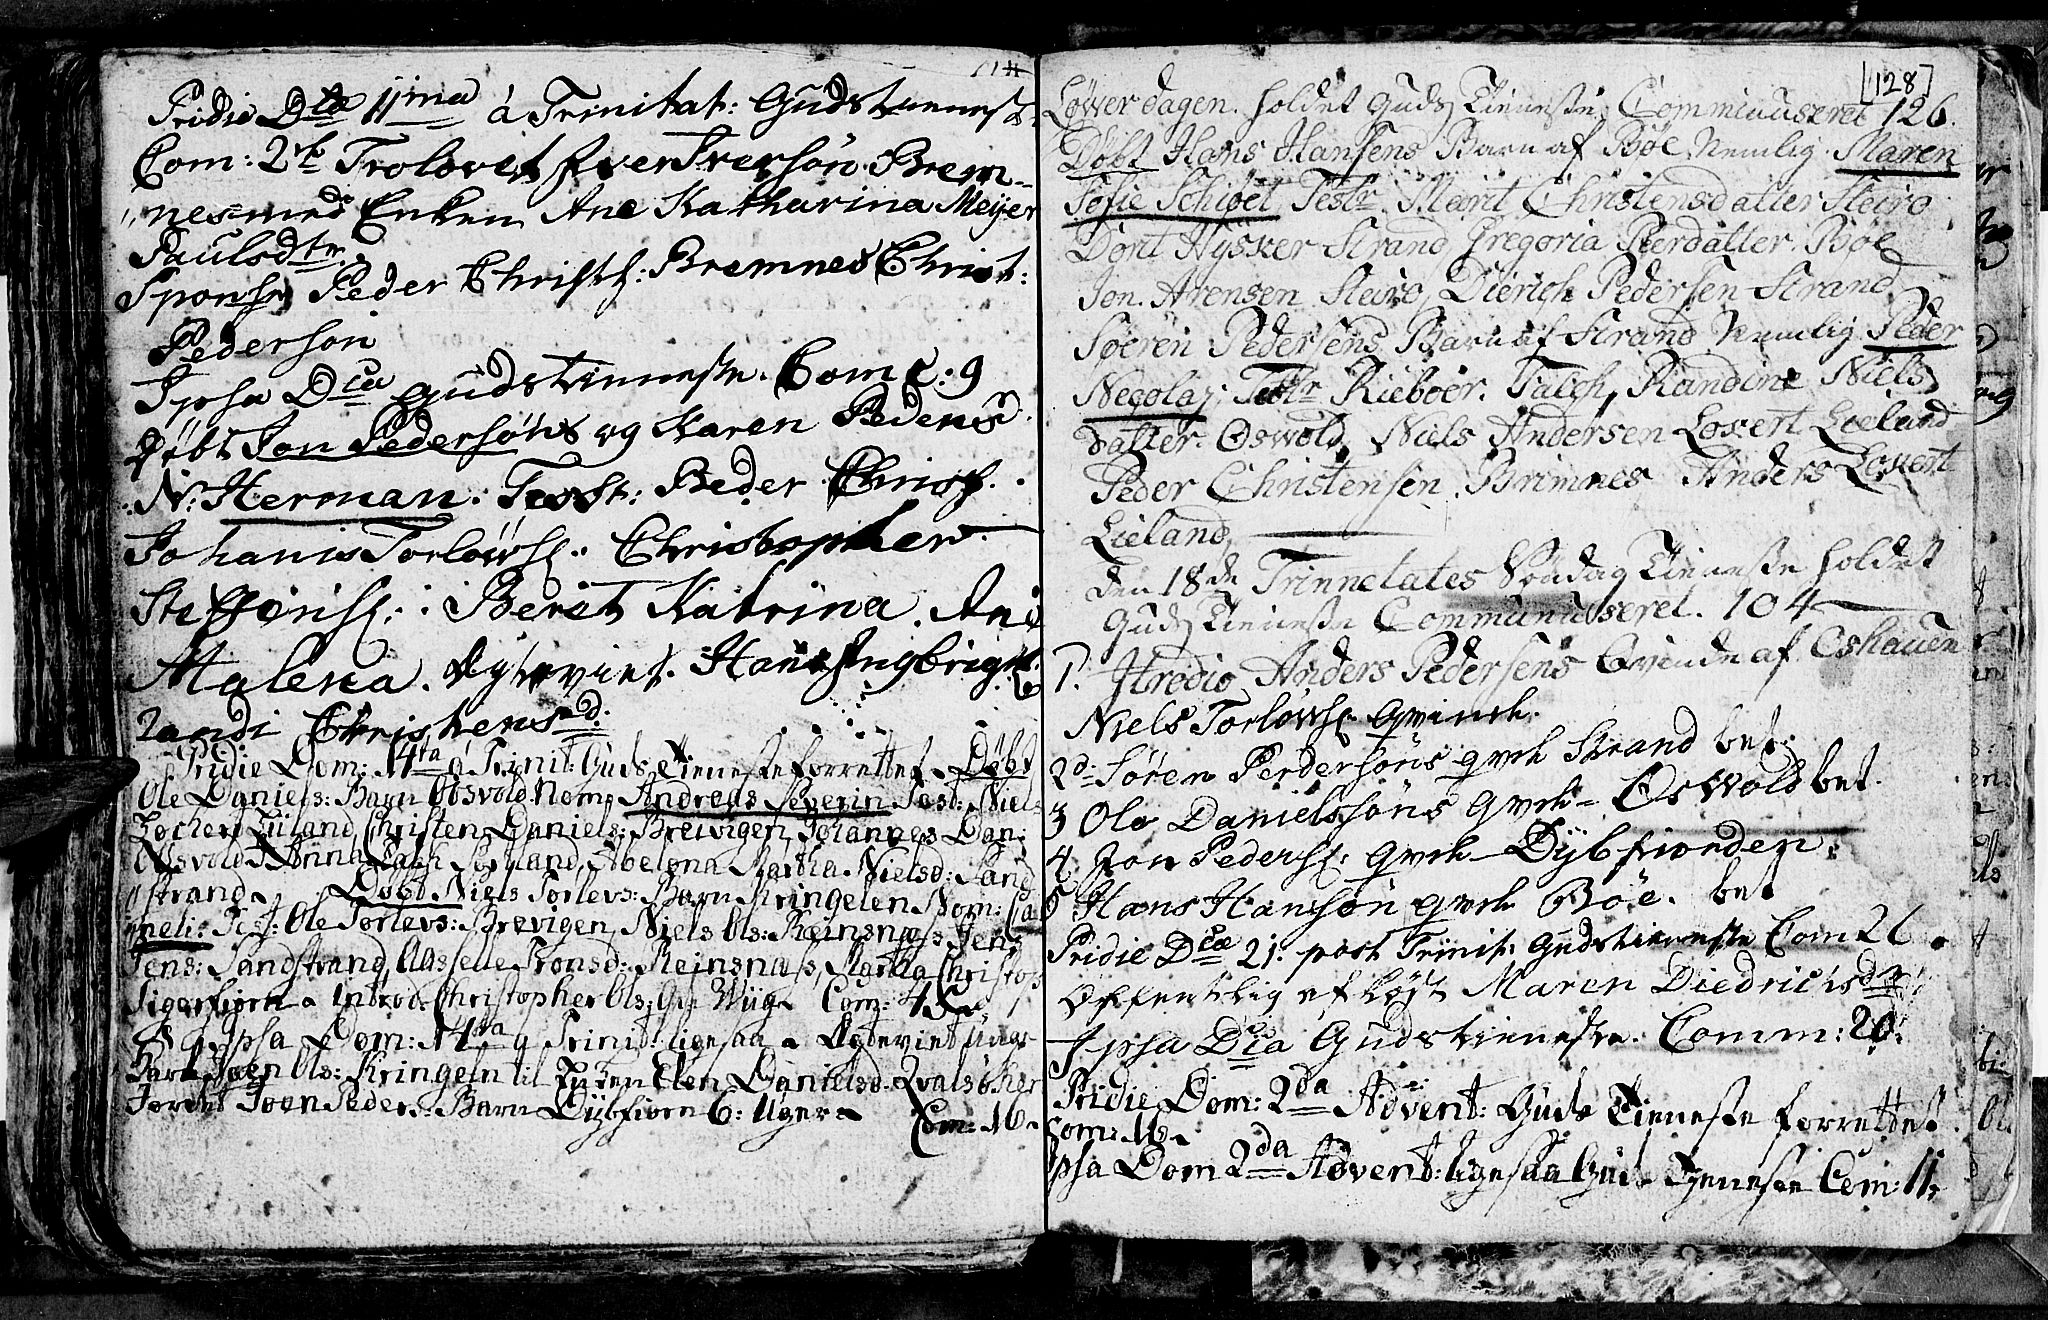 Pridie Dcæ 11ma á Trinitat: Gudstienneste
Com: 2rb Trolovet Iver Iversön Brem-
„nes med Enken Ane Katharina Meÿer
Paulsdtr
Sponsr Peder Christs: Bremnes Christ:
Pederson
Ipsa Dca Gudstienneste. Com: 9
Döbt Jon Pedersöns og Karen Peders d.
N: Herman. Test: Peder Christ.
Johanis Torlöws. Christopher
Steffens: Berit Katrina. Ane
Malena. Egteviet. Hans Ingbrigt
Randi Christensd:
Pridie Dom: 14ta á Trinit: Guds Tieneste forrettet. Döbt
Ole Daniels: Barn Oosvold. Nom: Andreas Severin Test: Niels
Lochert Eiland, Christen Daniels: Breivigen, Johannes Dan:
Oosvold, Anna, Abelena Martha Nielsd: Sand
strand. Döbt Niels Torlevs: Barn Kringelen Nom: Co
neli: Test: Ole Torlevs: Brevigen, Niels Ols: Reinsnæss, Jens
Jens: Sandstrand, Aasselle Tronsd: Reinsnæss, Martha Christop
Sigerfiorn. Introd: Christopher Ols: Com: 45.
Ipsa Dom: 14ta á Trinit: ligesaa. Egteviet Ungs-
Karl Joen Ols: Kringeln til Pigen Elen Danielsd: Qvalsö. her
Jordet Joen Peders: Barn Dÿbfiorn 6: Uger. Com: 16.
[128]
Löwerdagen holdet Guds Tieneste Communiseret 126.
Döbt Hans Hansens Barn af Böe Nemlig Maren
Sofie Schiöt, Testr Marit Christensdatter Steiro
Dort Hÿsker Strand Gregoria Pierdatter Böe
Jon Arensen Steiro, Dierich Pedersen Strand
Søeren Pedersens Barn af Strand Nemlig Peder
Necolaj: Testr Rieboer. Falch, Randine Niels
datter Oswold, Niels Andersen Loxert Eieland
Peder Christensen Brimnes Anders Loxert
Eieland
den 18de Trinnetates Söndag Tieneste holdet
Guds Tieneste Communiseret. 104
1. Anders Pedersens Qvinde af Oshauen
Niels Torlöws: Qvinde.
2d: Sören Pedersöns qvd Strand bet:
3 Ole Danielssöns Qvd- Oswold bet.
4. Jon Peders: Qvd- Dÿbfiorden.
5 Hans Hansön qvd Böe. bet
Pridie Dcæ 21. post Trinit: Gudstienneste Com 26
Offentlig Maren Diedrichsdr:
Ipsa Dca Gudstieneste. Comm: 20:
Pridie Dom: 2da Advent: Guds Tieneste forrettet.
Com: 16.
Ipsa Dom 2da Advent: ligesaa Guds Tjeneste Com: 11.